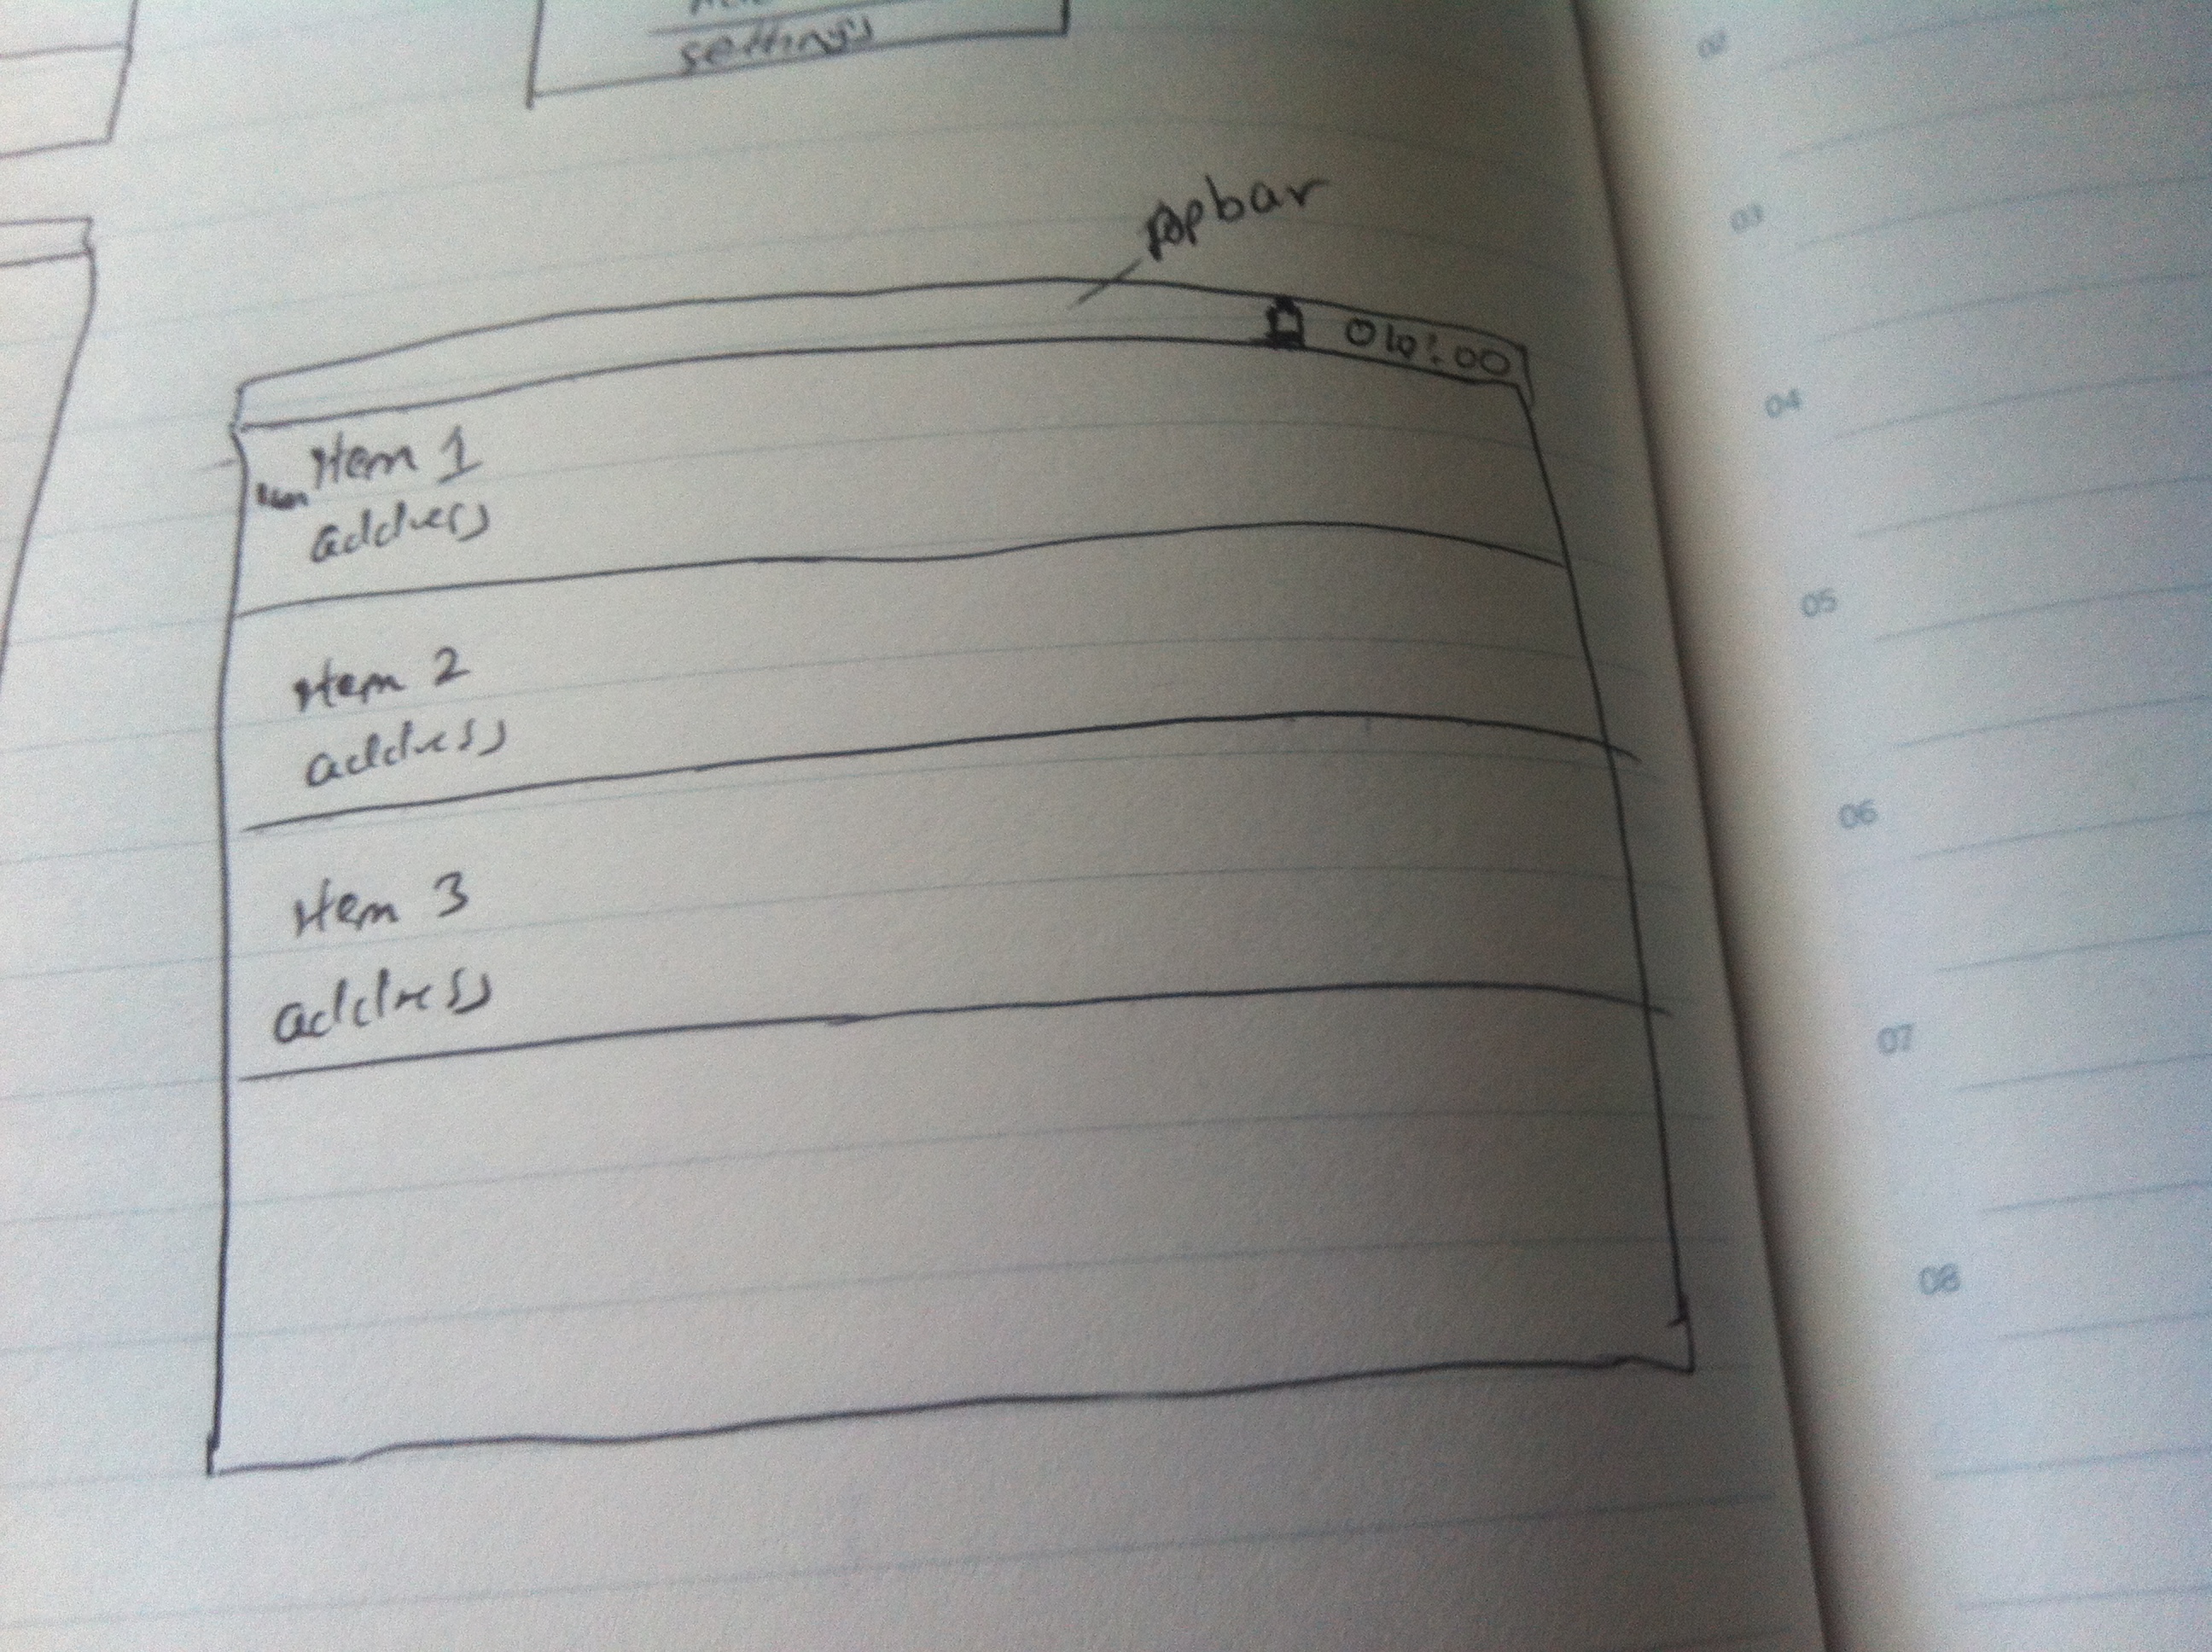 settings
topbar
Item 1
address
Item 2
address
Item 3
address
02
03
04
05
06
07
08